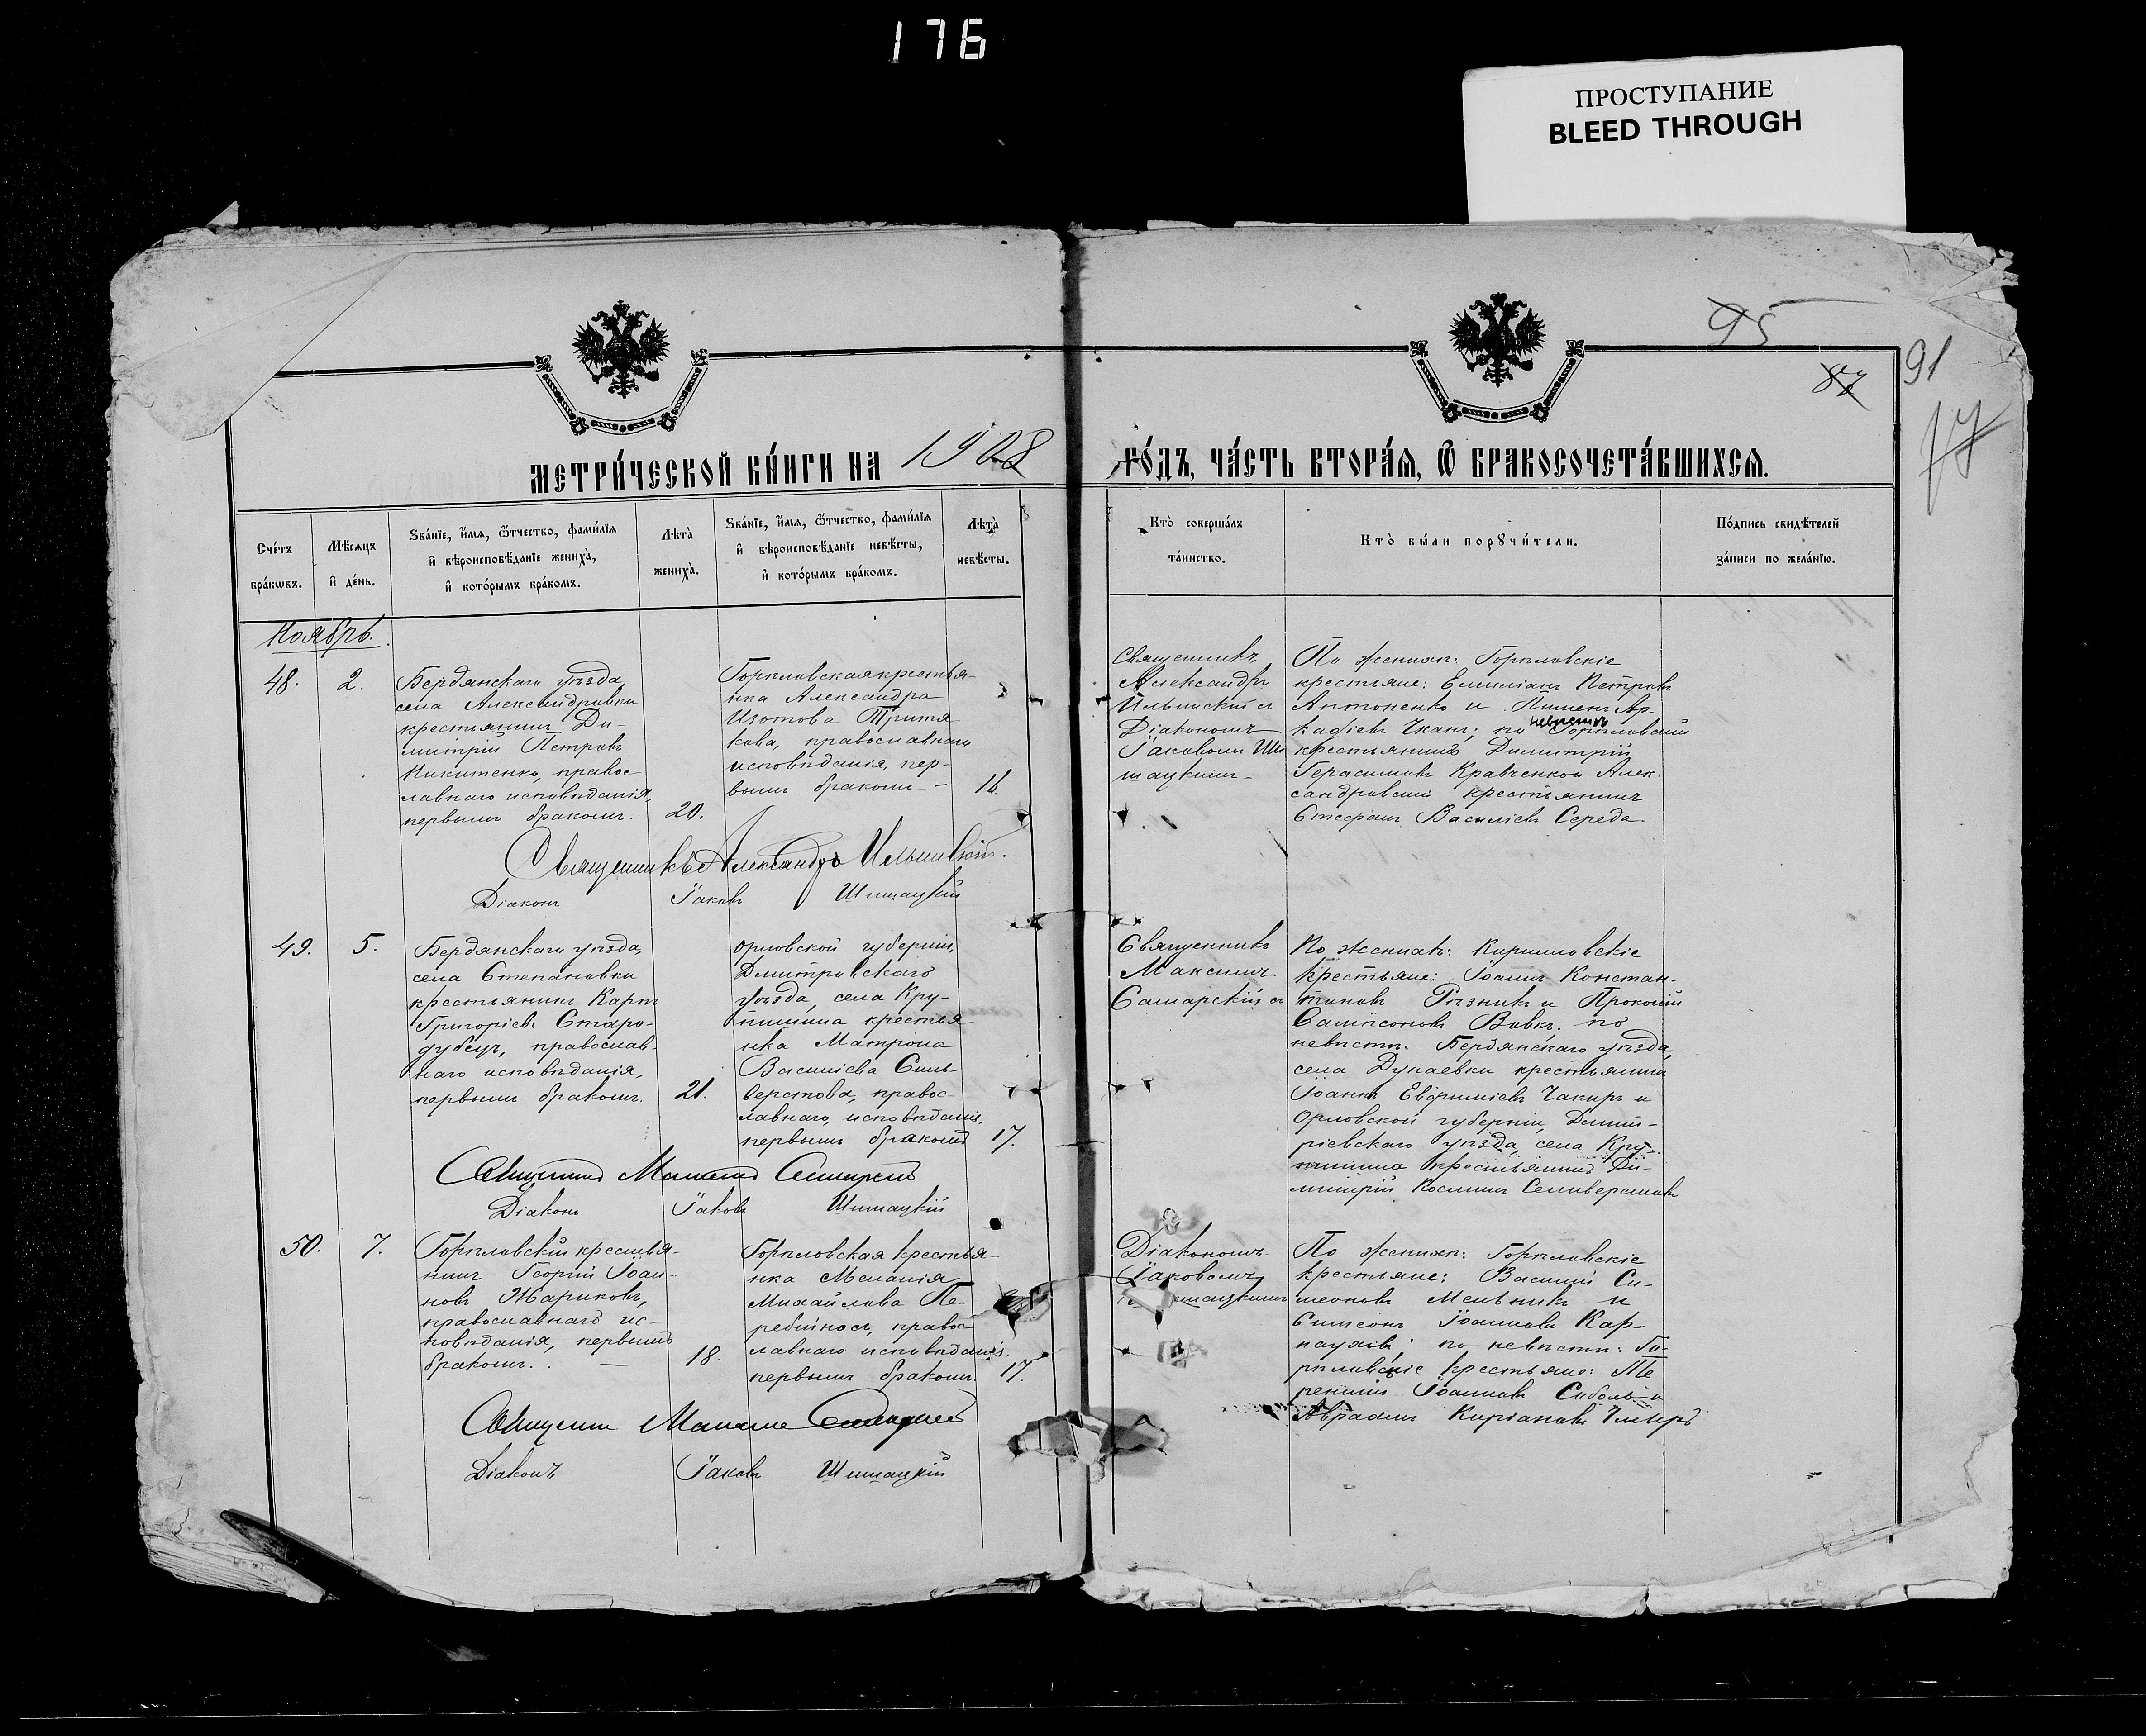 176
ПРОСТУПАНИЕ
BLEED THROUGH
95
87
91
77
МЕТРИ́ЧЕСКОЙ КНИ́ГИ НА 1908
ГО́ДЪ, ЧА́СТЬ ВТОРА́Я, Ѽ БРАКОСОЧЕТА́ВШИХСЯ.
Сче́тъ
бра́кѡвъ.
Мѣ́сяцъ
и҆ де́нь.
Ѕва́нїе, и҆́мя, ѻ҆́тчество, фами́лїя
и҆ вѣроисповѣ́данїе жениха̀,
и҆ кото́рымъ бра́комъ.
Лѣта̀
жениха̀.
Ѕва́нїе, и҆́мя, ѻ҆́тчество, фами́лїя
и҆ вѣроисповѣ́данїе невѣ́сты,
и҆ кото́рымъ бра́комъ.
Лѣта̀
невѣ́сты.
Кто̀ соверша́лъ
та́инство.
Кто̀ бы́ли порꙋчи́тели.
По́дпись свидѣ́телей
за́писи по жела́нїю.
Ноябрь.
48.
2.
Бердянскаго уѣзда,
села Александровки
крестьянинъ Ди-
митрій Петровъ
Никитенко, правос-
лавнаго исповѣданія,
первымъ бракомъ.
20.
Горѣловская крестья-
нка Александра
Изотова Тритя
кова, православнаго
исповѣданія, пер-
вымъ бракомъ –
16.
Священникъ
Александръ
Ильинскій съ
Діакономъ
Іаковомъ Ши
шацкимъ –
По женихѣ: Горѣловскіе
крестьяне: Емиліанъ Петровъ
Антоненко и Пименъ Ар-
кадіевъ Чканъ; по невѣстѣ Горѣловскій
крестьянинъ Димитрій
Герасимовъ Кравченко и Алек
сандровскій крестьянинъ
Стефанъ Василіевъ Середа
Священникъ Александръ Ильинскій.
Діаконъ Іаковъ Шишацкій
49.
5.
Бердянскаго уѣзда,
села Степановки
крестьянинъ Карпъ
Григоріевъ Старо-
дубецъ, православ-
наго исповѣданія,
первымъ бракомъ.
21.
Орловской губерніи,
Дмитровскаго
уѣзда, села Кру-
пышина крестья-
нка Матрона
Василіева Сили-
верстова, правос-
лавнаго исповѣданія,
первымъ бракомъ
17.
Священникъ
Максимъ
Самарскій съ
По женихѣ: Кирилловскіе
крестьяне: Іоаннъ Констан-
тиновъ Рѣзникъ и Прокопій
Сампсоновъ Вовкъ. по
невѣстѣ: Бердянскаго уѣзда,
села Дунаевки крестьянинъ
Іоаннъ Евфиміевъ Чакиръ и
Орловской губерніи, Димит-
ріевскаго уѣзда, села Кру-
пышина крестьянинъ Ди-
митрій Косминъ Селиверстовъ
Священникъ Максимъ Самарскій
Діаконъ Іаковъ Шишацкій
50.
7.
Горѣловскій крестья-
нинъ Георгій Іоан-
новъ Жариковъ,
православнаго ис-
повѣданія, первымъ
бракомъ. –
18.
Горѣловская крестья-
нка Меланія
Михайлова Пе-
ребийносъ, правос-
лавнаго исповѣданія.
первымъ бракомъ.
17.
Діакономъ
Іаковомъ
шацкимъ
По женихѣ: Горѣловскіе
крестьяне: Василій Си-
меоновъ Мельникъ и
Симеонъ Іоанновъ Кар-
наухъ; по невѣстѣ: Го-
рѣловскіе крестьяне: Те
рентій Іоанновъ Соболь и
Авраамъ Киріановъ
Священникъ Максимъ Самарскій
Діаконъ Іаковъ Шишацкій